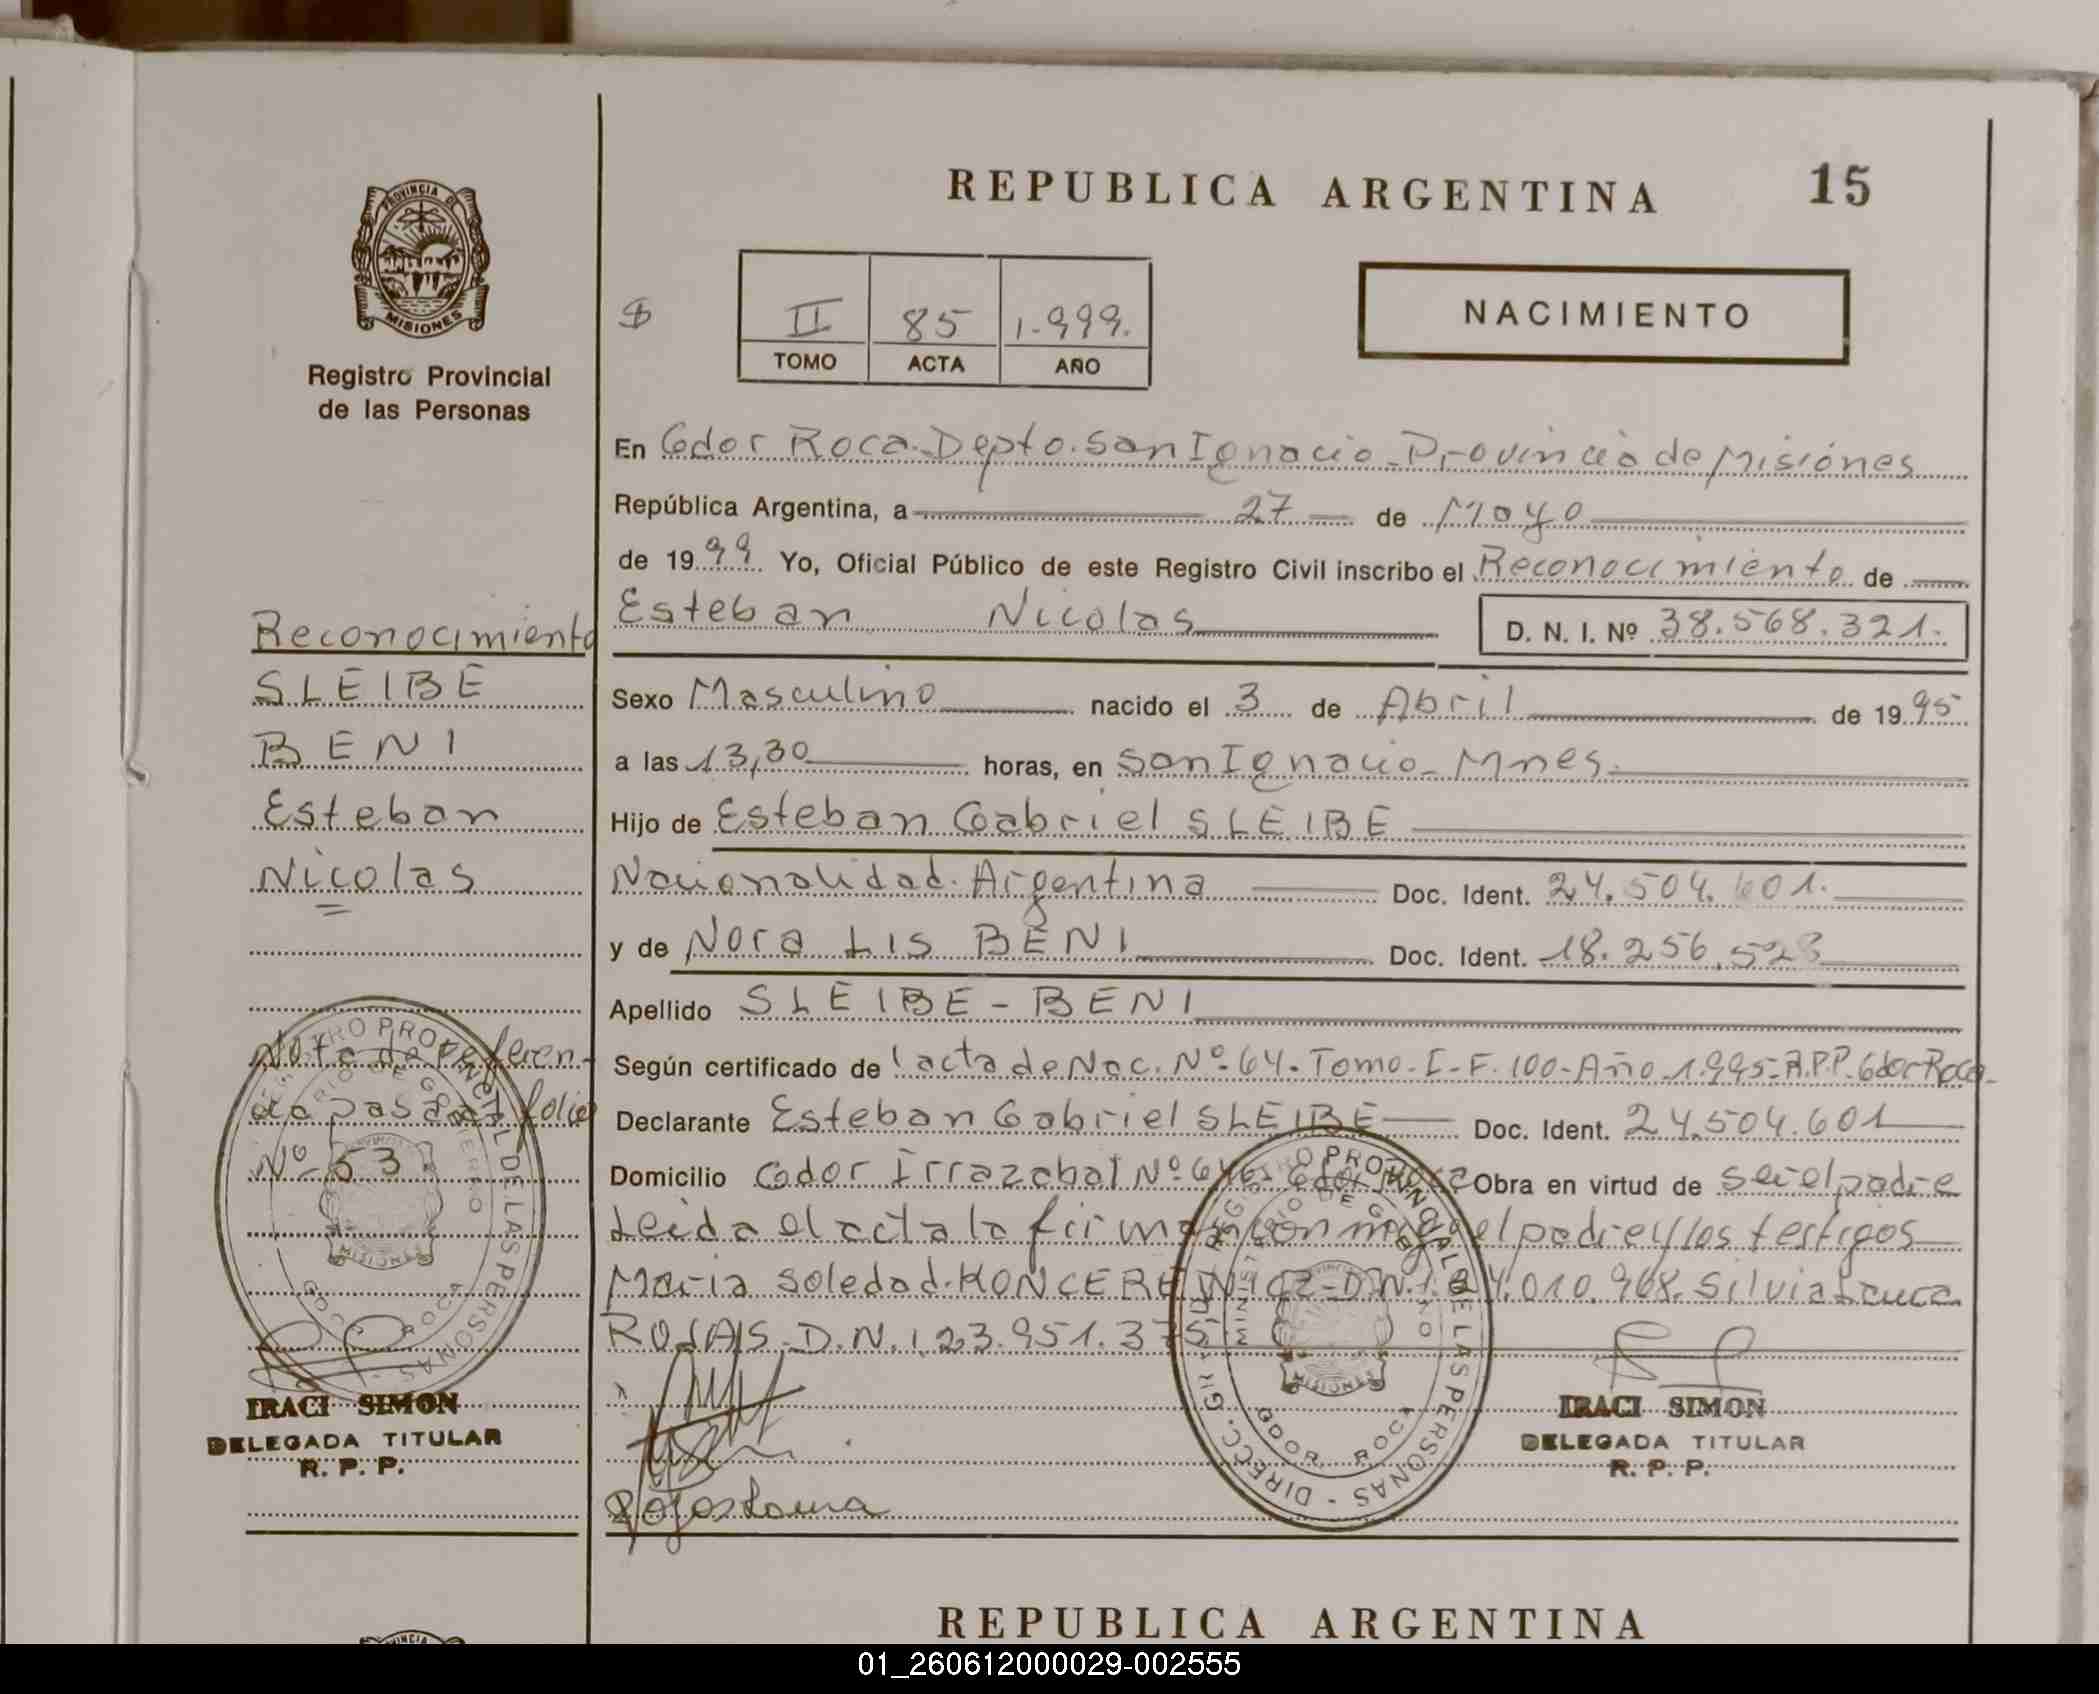 PROVINCIA DE
MISIONES
Registro Provincial
de las Personas
REPUBLICA ARGENTINA
15
$
II 85 1.999.
TOMO ACTA AÑO
NACIMIENTO
En Gdor Roca. Depto. San Ignacio. Provincia de Misiones
República Argentina, a 27 de Mayo
de 1999 Yo, Oficial Público de este Registro Civil inscribo el Reconocimiento de
Esteban Nicolas
D. N. I. Nº 38.568.321.
Sexo Masculino nacido el 3 de Abril de 1995
a las 13,30 horas, en San Ignacio - Mnes.
Hijo de Esteban Gabriel SLEIBE
Nacionalidad. Argentina Doc. Ident. 24.504.601.
y de Nora Lis BENI Doc. Ident. 18.256.528
Apellido SLEIBE - BENI
Según certificado de l acta de Nac. Nº 64. Tomo. I - F. 100 - Año. 1.995 - R.P.P. Gdor Roca.
Declarante Esteban Gabriel SLEIBE Doc. Ident. 24.504.601
Domicilio Gdor Irrazabal Nº 646. Gdor Roca Obra en virtud de ser el padre
Leida el acta la firman conmigo el padre y los testigos
Maria Soledad. D.N.I. 24.010.968. Silvia Laura
ROJAS. D.N.I. 23.951.375
Rojas Laura
REGISTRO PROVINCIAL DE LAS PERSONAS - DIRECC. GRAL
MINISTERIO DE GOBIERNO
PROVINCIA
MISIONES
GDOR. ROCA
IRACI SIMON
DELEGADA TITULAR
R. P. P.
Reconocimiento
SLEIBE
BENI
Esteban
Nicolas
Nota de referen-
cia pasada folio
Nº 53
REGISTRO PROVINCIAL DE LAS PERSONAS
MINISTERIO DE GOBIERNO
MISIONES
GDOR. ROCA
IRACI SIMON
DELEGADA TITULAR
R. P. P.
REPUBLICA ARGENTINA
01_260612000029-002555